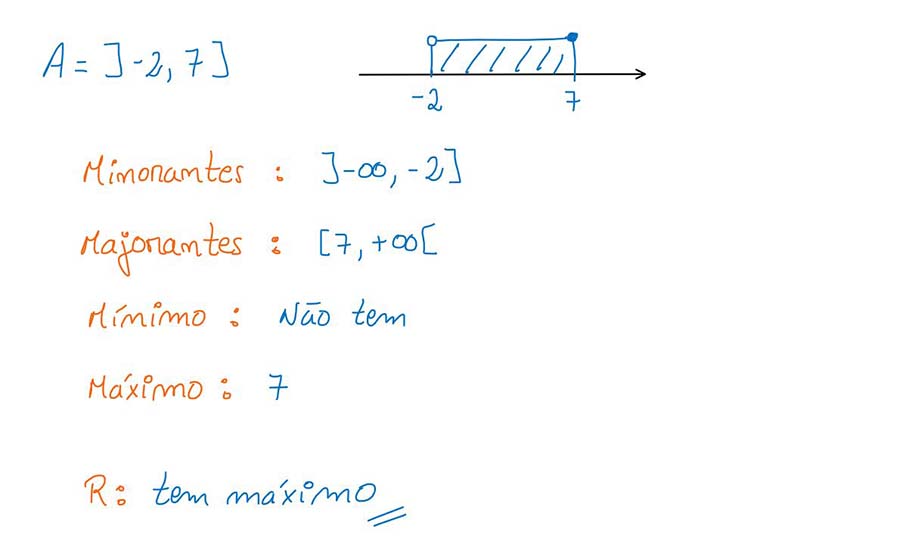 A = ]-2, 7]
-2 7
Minorantes : ]-∞, -2]
Majorantes : [7, +∞[
Mínimo : Não tem
Máximo : 7
R: tem máximo